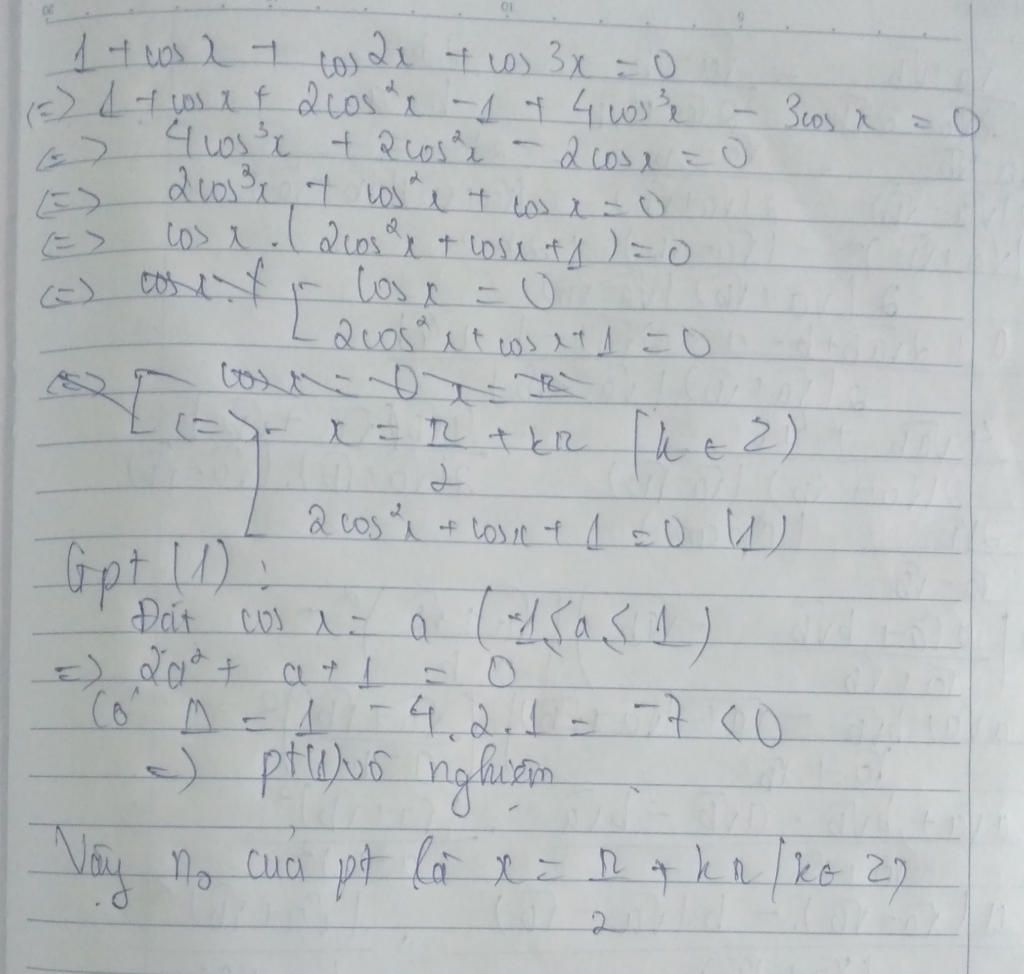 1 + cos x + cos 2x + cos 3x = 0
(=) 1 + cos x + 2cos²x - 1 + 4cos³x - 3cos x = 0
(=) 4cos³x + 2cos²x - 2cosx = 0
(=) 2cos³x + cos²x + cos x = 0
(=) cos x . (2cos²x + cosx + 1) = 0
(=) cos x . [ cos x = 0
2cos²x + cos x + 1 = 0
(=) [ cos x = 0 x = π
(=) [ x = π/2 + kπ (k ∈ Z)
2cos²x + cosx + 1 = 0 (1)
Gpt (1) :
Đặt cos x = a (-1 ≤ a ≤ 1)
=) 2a² + a + 1 = 0
Có Δ = 1 - 4.2.1 = -7 < 0
=) pt(1) vô nghiệm
Vậy n₀ của pt là x = π/2 + kπ (k ∈ Z)